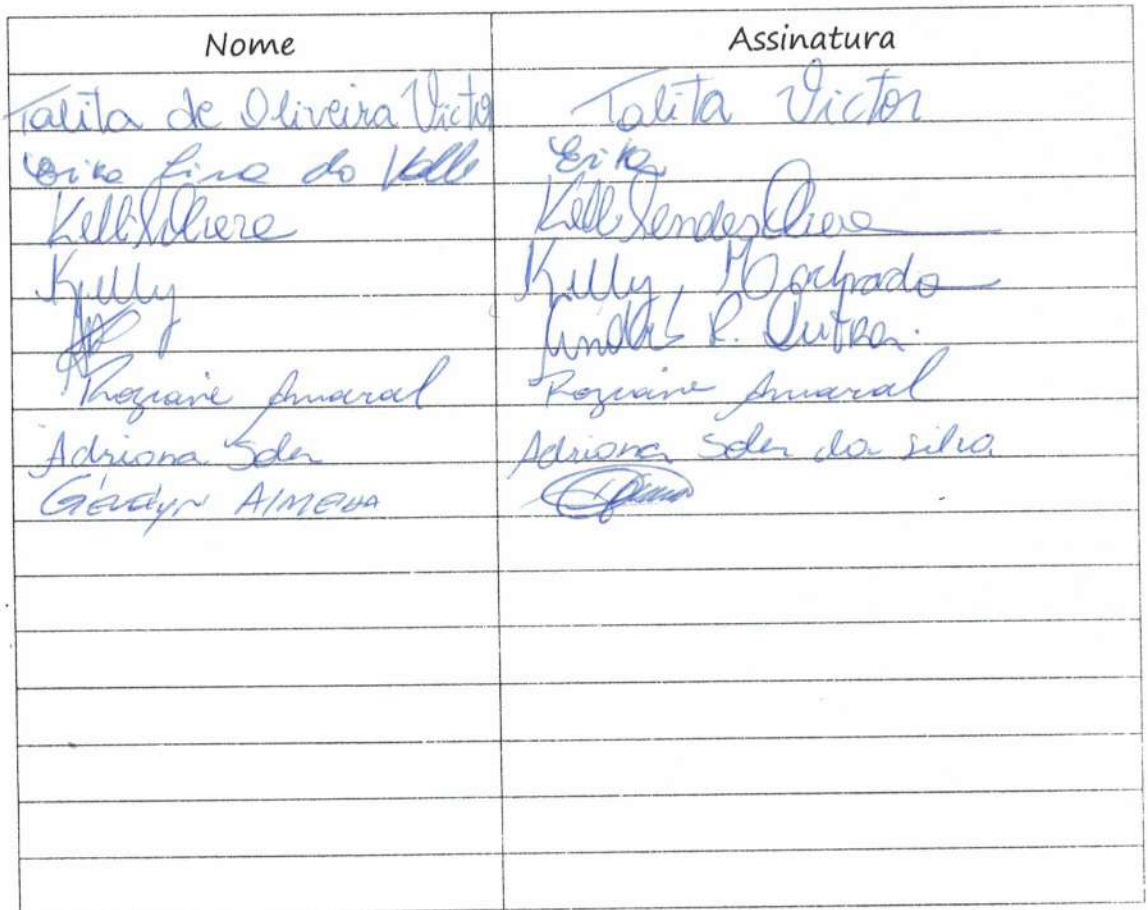 Nome Assinatura
Talita de Oliveira Victor Talita Victor
Erika do Valle Erika
Kelli Kelli Mendes
Kelly Kelly Machado
R. Dutra.
Roziane Amaral Roziane Amaral
Adriana Soler Adriana Soler da Silva
Almeida